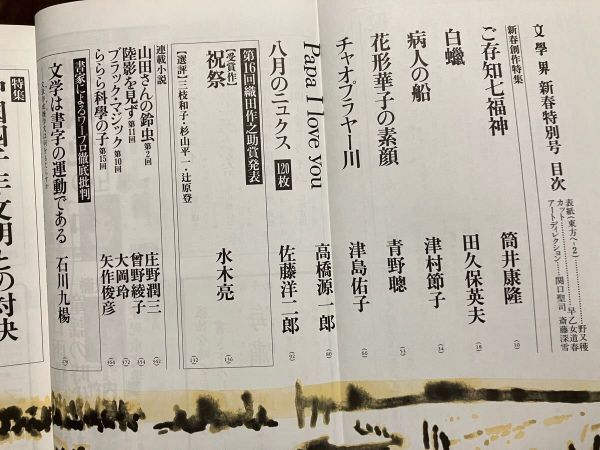 文學界 新春特別号 目次
表紙(東方へ・2)……野又穫
カット……早乙女道春
アートディレクション……関口聖司 斎藤深雪
新春創作特集
ご存知七福神 筒井康隆
白蠟 田久保英夫
病人の船 津村節子
花形華子の素顔 青野聰
チャオプラヤー川 津島佑子
Papa I love you 高橋源一郎
八月のニュクス 120枚 佐藤洋二郎
第16回織田作之助賞発表
【受賞作】
祝祭 水木亮
【選評】三枝和子・杉山平一・辻原登
連載小説
山田さんの鈴虫 第2回 庄野潤三
陸影を見ず 第11回 曾野綾子
ブラック・マジック 第10回 大岡玲
ららら科學の子 第15回 矢作俊彦
書家によるワープロ徹底批判
文学は書字の運動である 石川九楊
特集
中国四千年文明との対決